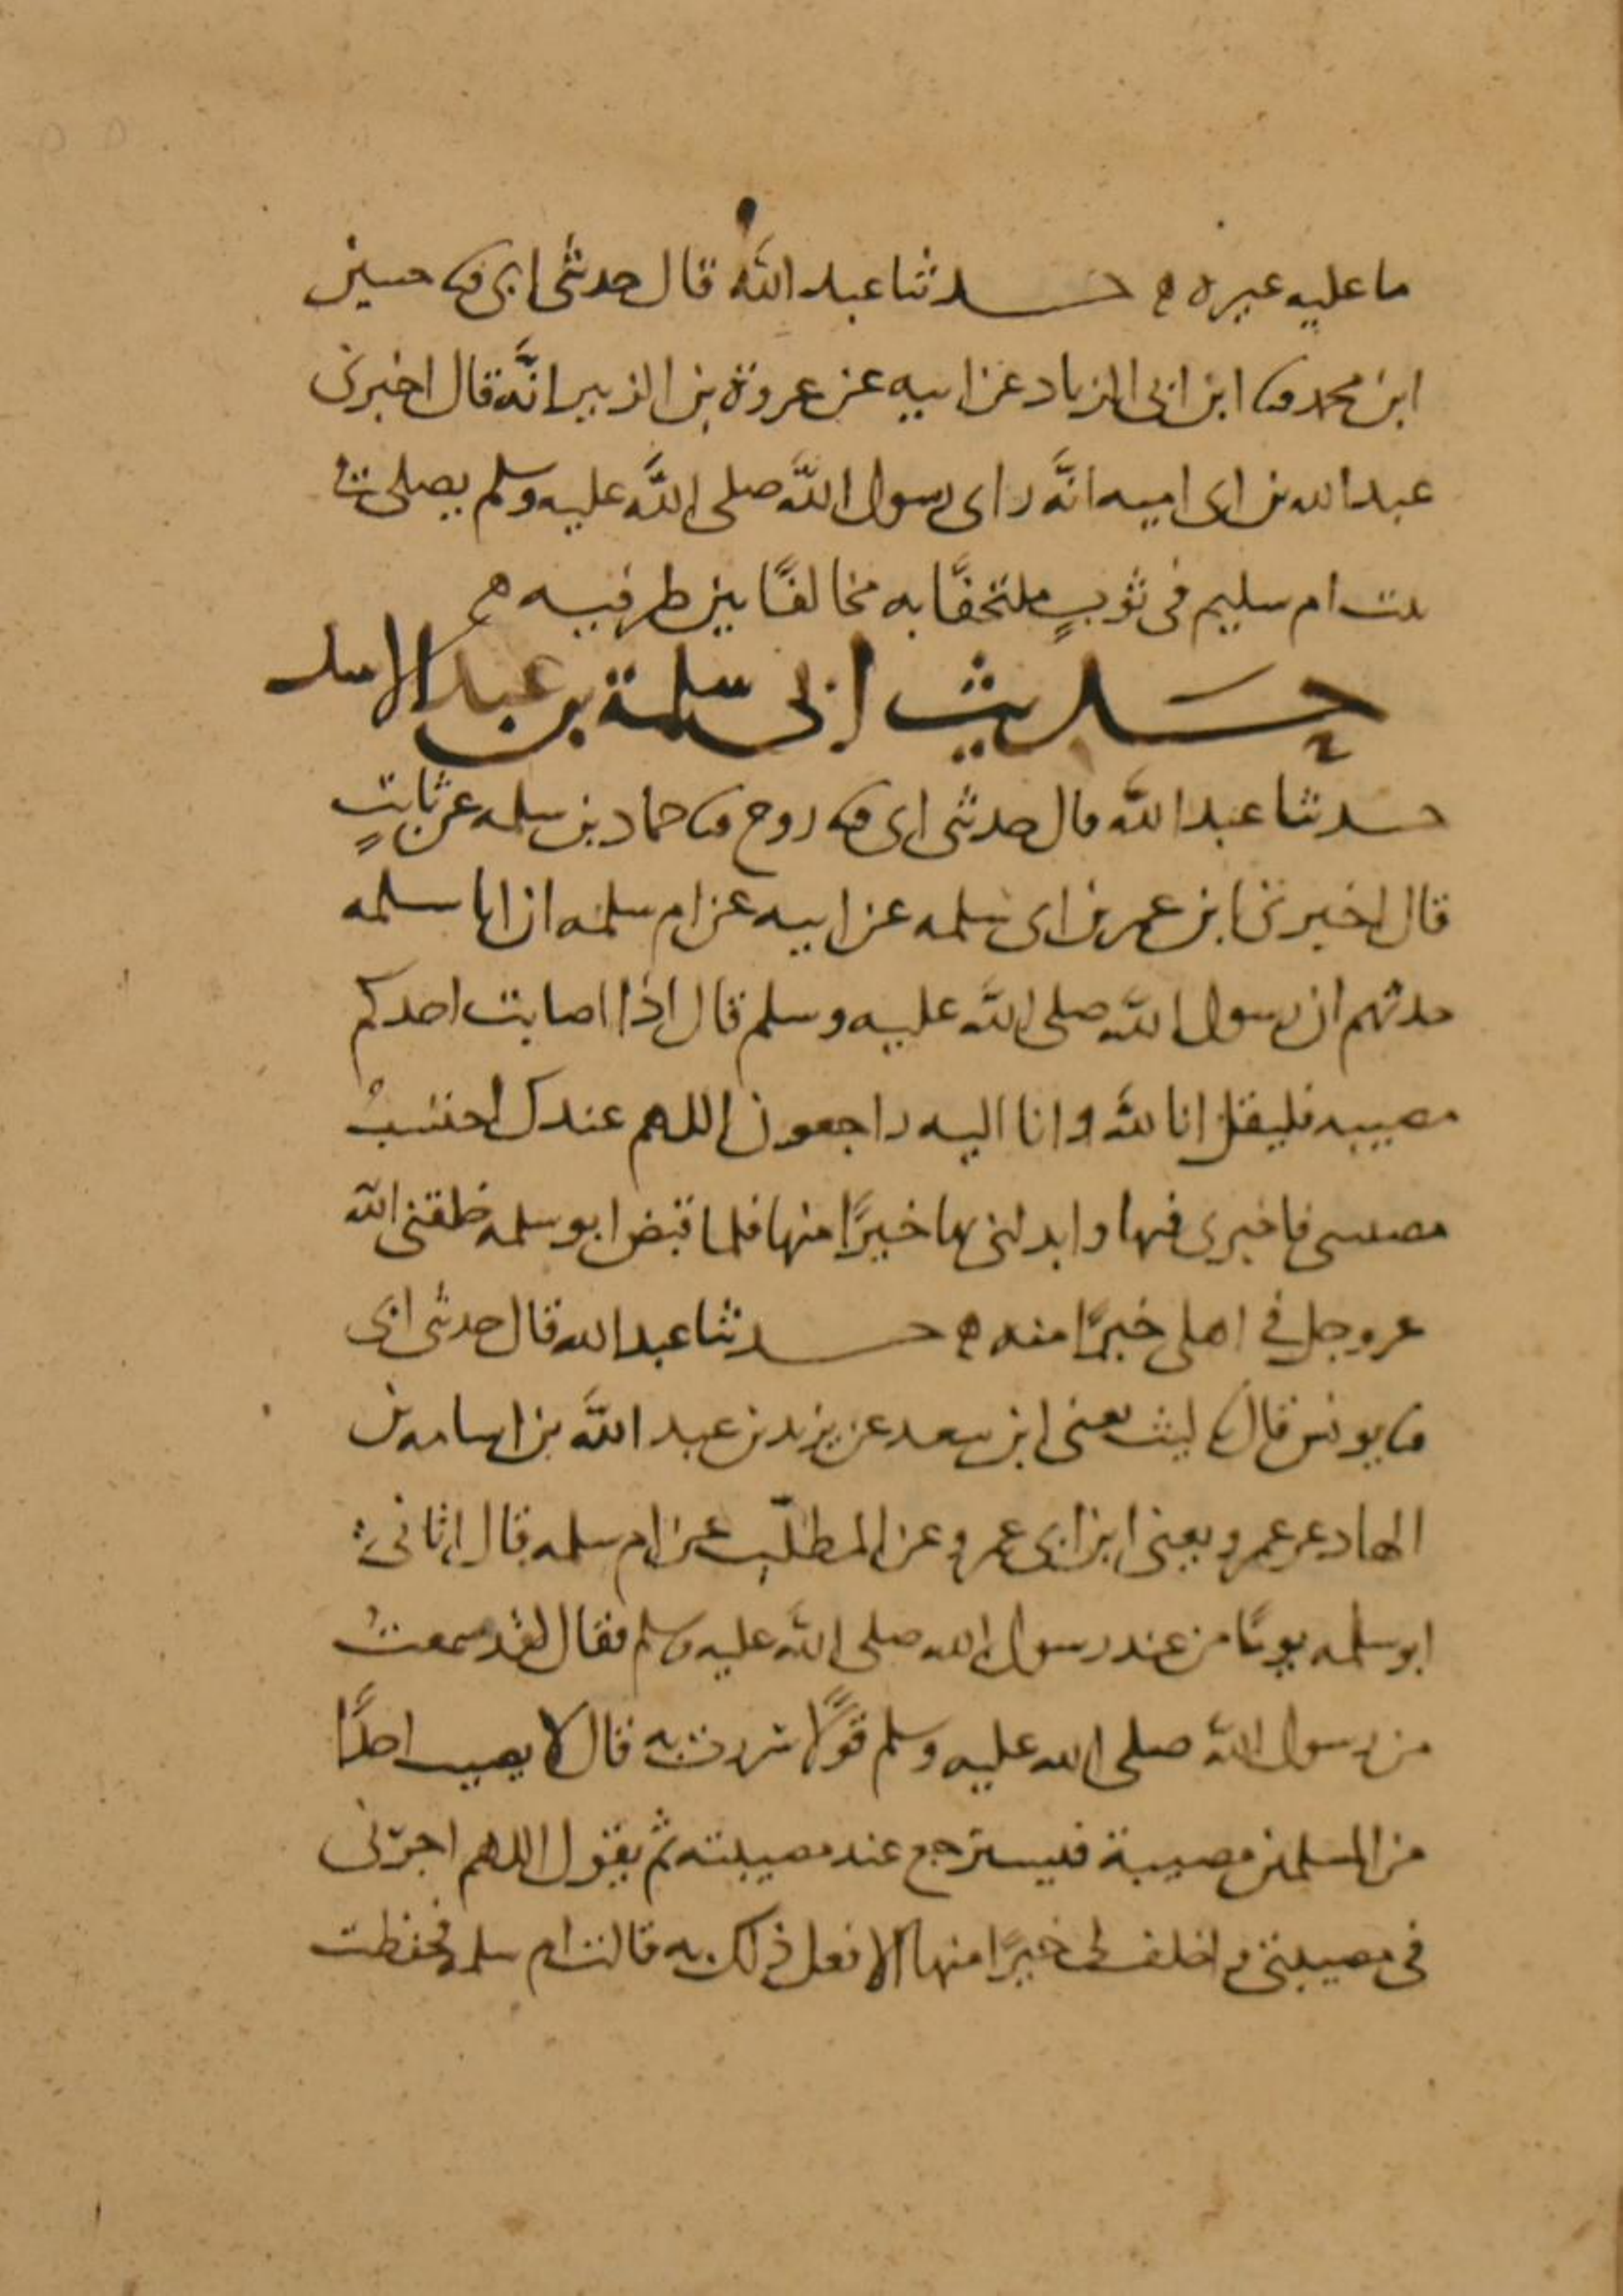 ما عليه غيره ه حدثنا عبد الله قال حدثني ابي ثنا حسين
ابن محمد ثنا ابن ابي الزناد عن ابيه عن عروة بن الزبير انَّه قال اخبرني
عبد الله بن ابي اميه انَّه راى رسول اللَّه صلى اللَّه عليه وسلم يصلي في
بيت ام سليم في ثوبٍ ملتحفًا به مخالفًا بين طرفيه ه
حديث ابي سلمة بن عبد الاسد
حدثنا عبد الله قال حدثني ابي ثنا روح ثنا حماد بن سلمه عن ثابتٍ
قال اخبرني ابن عمر بن ابي سلمه عن ابيه عن ام سلمه ان ابا سلمه
حدثهم ان رسول اللَّه صلى اللَّه عليه وسلم قال اذا اصابت احدكم
مصيبه فليقل انا للَّه وانا اليه راجعون اللهم عندك احتسبُ
مصيبتي فاجرني فيها وابدلني بها خيرًا منها فلما قبض ابو سلمه خلفني الله
عز وجل في اهلي خيرًا منه ه حدثنا عبد الله قال حدثني ابي
ثنا يونس قال ثنا ليث يعني ابن سعد عن يزيد بن عبد اللَّه بن اسامه بن
الهاد عن عمرو يعني ابن ابي عمرو عن المطلّب عن ام سلمه قال اتاني
ابو سلمه يومًا من عند رسول الله صلى اللَّه عليه وسلم فقال لقد سمعتُ
من رسول اللَّه صلى الله عليه وسلم قولًا سررت به قال لا يصيب احدًا
من المسلمين مصيبة فيسترجع عند مصيبته ثم يقول اللهم اجرني
في مصيبتي و اخلف لي خيرًا منها الا فعل ذلك به قالت ام سلمه فحفظت